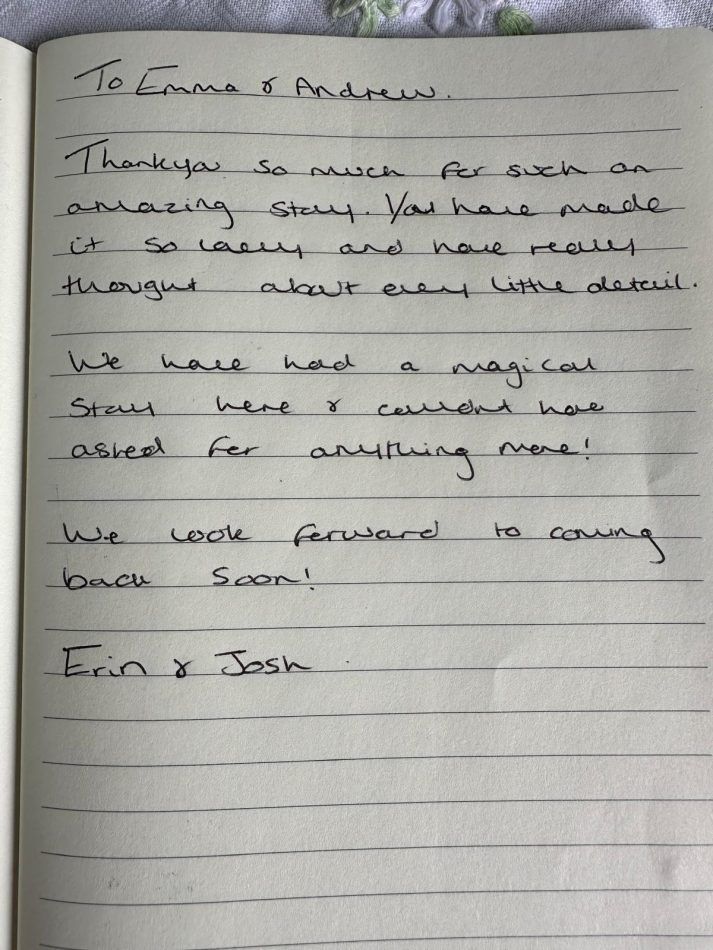 To Emma & Andrew.
Thankyou so much for such an
amazing stay. You have made
it so lovely and have really
thought about every little detail.
We have had a magical
stay here & couldn't have
asked for anything more!
We look forward to coming
back soon!
Erin & Josh